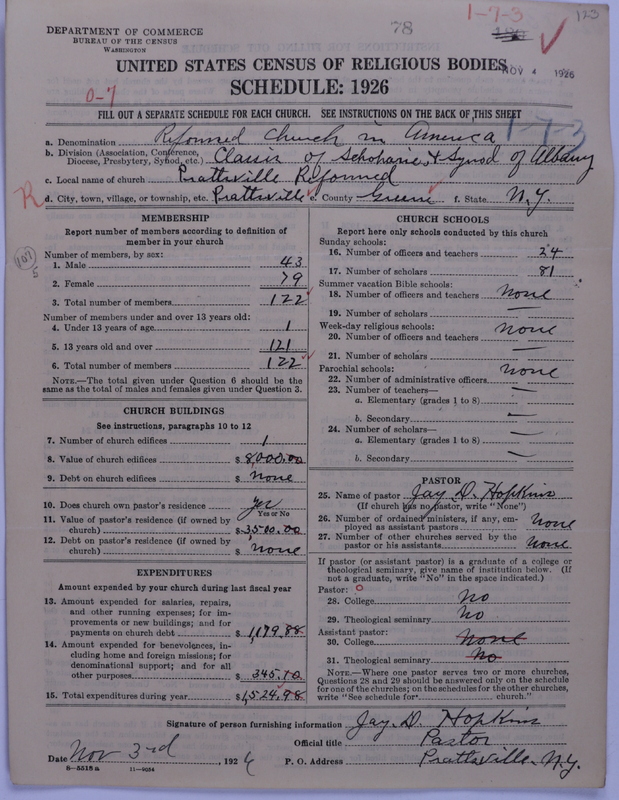 DEPARTMENT OF COMMERCE
BUREAU OF THE CENSUS
WASHINGTON
78
1-7-3
123
NOV 4 1926
UNITED STATES CENSUS OF RELIGIOUS BODIES
SCHEDULE: 1926
0-7
FILL OUT A SEPARATE SCHEDULE FOR EACH CHURCH. SEE INSTRUCTIONS ON THE BACK OF THIS SHEET
1-7-3
a. Denomination Reformed Church in America
b. Division (Association, Conference, Diocese, Presbytery, Synod, etc.) Classis of Schoharie, & Synod of Albany
c. Local name of church Prattsville Reformed
R
d. City, town, village, or township, etc. Prattsville e. County Greene f. State N.Y.
107
MEMBERSHIP
Report number of members according to definition of
member in your church
Number of members, by sex:
1. Male 43
2. Female 79
3. Total number of members 122
Number of members under and over 13 years old:
4. Under 13 years of age 1
5. 13 years old and over 121
6. Total number of members 122
NOTE.—The total given under Question 6 should be the
same as the total of males and females given under Question 3.
CHURCH BUILDINGS
See instructions, paragraphs 10 to 12
7. Number of church edifices 1
8. Value of church edifices $ 8,000.00
9. Debt on church edifices $ none
10. Does church own pastor's residence yes
Yes or No
11. Value of pastor's residence (if owned by
church) $ 3,500.00
12. Debt on pastor's residence (if owned by
church) $ none
EXPENDITURES
Amount expended by your church during last fiscal year
13. Amount expended for salaries, repairs,
and other running expenses; for im-
provements or new buildings; and for
payments on church debt $ 1,179.88
14. Amount expended for benevolences, in-
cluding home and foreign missions; for
denominational support; and for all
other purposes $ 345.10
15. Total expenditures during year $ 1,524.98
CHURCH SCHOOLS
Report here only schools conducted by this church
Sunday schools:
16. Number of officers and teachers 24
17. Number of scholars 81
Summer vacation Bible schools:
18. Number of officers and teachers none
19. Number of scholars —
Week-day religious schools:
20. Number of officers and teachers none
21. Number of scholars —
Parochial schools:
22. Number of administrative officers none
23. Number of teachers—
a. Elementary (grades 1 to 8) —
b. Secondary —
24. Number of scholars—
a. Elementary (grades 1 to 8) —
b. Secondary —
PASTOR
25. Name of pastor Jay D. Hopkins
(If church has no pastor, write "None")
26. Number of ordained ministers, if any, em-
ployed as assistant pastors none
27. Number of other churches served by the
pastor or his assistants none
If pastor (or assistant pastor) is a graduate of a college or
theological seminary, give name of institution below. (If
not a graduate, write "No" in the space indicated.)
Pastor: O
28. College No
29. Theological seminary No
Assistant pastor:
30. College None
31. Theological seminary No
NOTE.—Where one pastor serves two or more churches,
Questions 28 and 29 should be answered only on the schedule
for one of the churches; on the schedules for the other churches,
write "See schedule for church."
Signature of person furnishing information Jay. D. Hopkins
Official title Pastor
Date Nov 3rd, 1926 P. O. Address Prattsville, N.Y.
8-5518a 11-9054